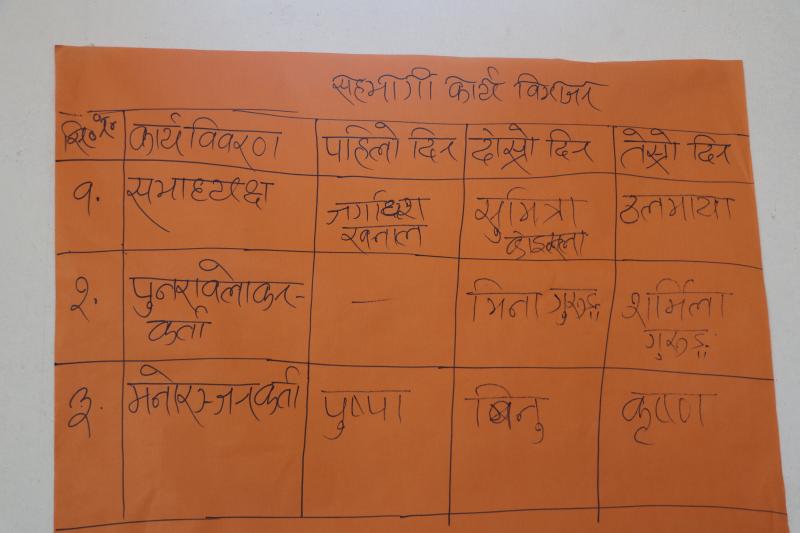 सहभागी कार्य विभाजन
सि॰नं॰ कार्य विवरण पहिलो दिन दोस्रो दिन तेस्रो दिन
१. सभाध्यक्ष जगदिश खनाल सुमित्रा डलमाया
२. पुनरावलोकन- कर्ता — मिना गुरुङ्ग शर्मिला गुरुङ्ग
३. मनोरञ्जनकर्ता पुष्पा बिनु कृष्ण